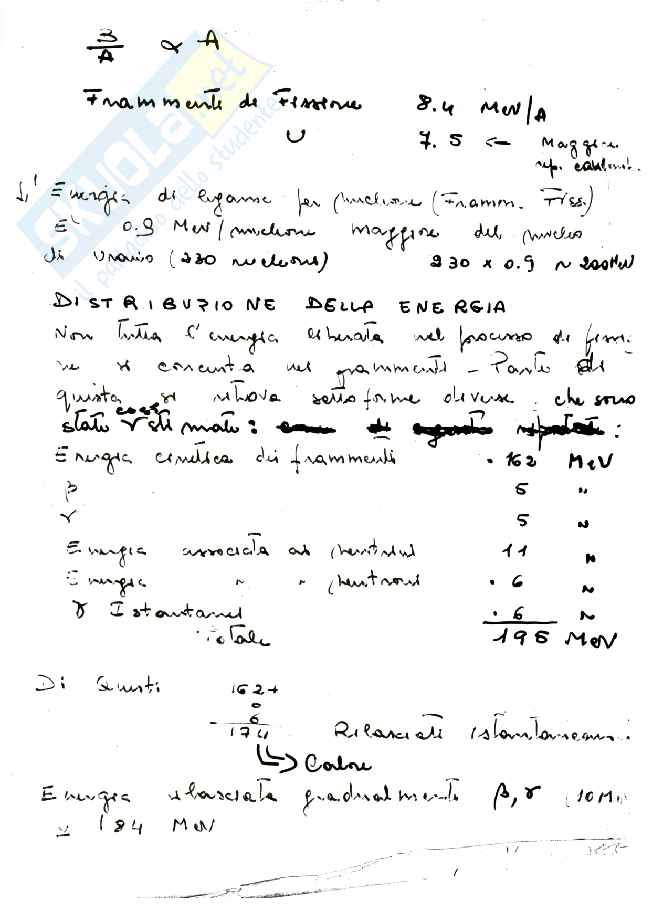 B/A ∝ A
Frammenti di Fissione 8.4 MeV/A
U 7.5 ← Maggior
rep. coulomb.
L' Energia di legame per nucleone (Framm. Fiss.)
E' 0.9 MeV/nucleone maggiore del nucleo
di Uranio (230 nucleoni) 230 x 0.9 ~ 200 MeV
DISTRIBUZIONE DELLA ENERGIA
Non tutta l'energia liberata nel processo di fissio
ne si concentra nei frammenti - Parte di
questa si ritrova sotto forme diverse che sono
state così stimate:
Energia cinetica dei frammenti . 162 MeV
β 5 "
γ 5 "
Energia associata ai neutrini 11 "
Energia " " neutroni . 6 "
γ Istantanei . 6 "
Totale 195 MeV
Di questi 162+
6
6
174 Rilasciati istantaneam.
Calore
Energia rilasciata gradualmente β, γ (10 Me
184 MeV
SKUOLA.net
il paradiso dello studente